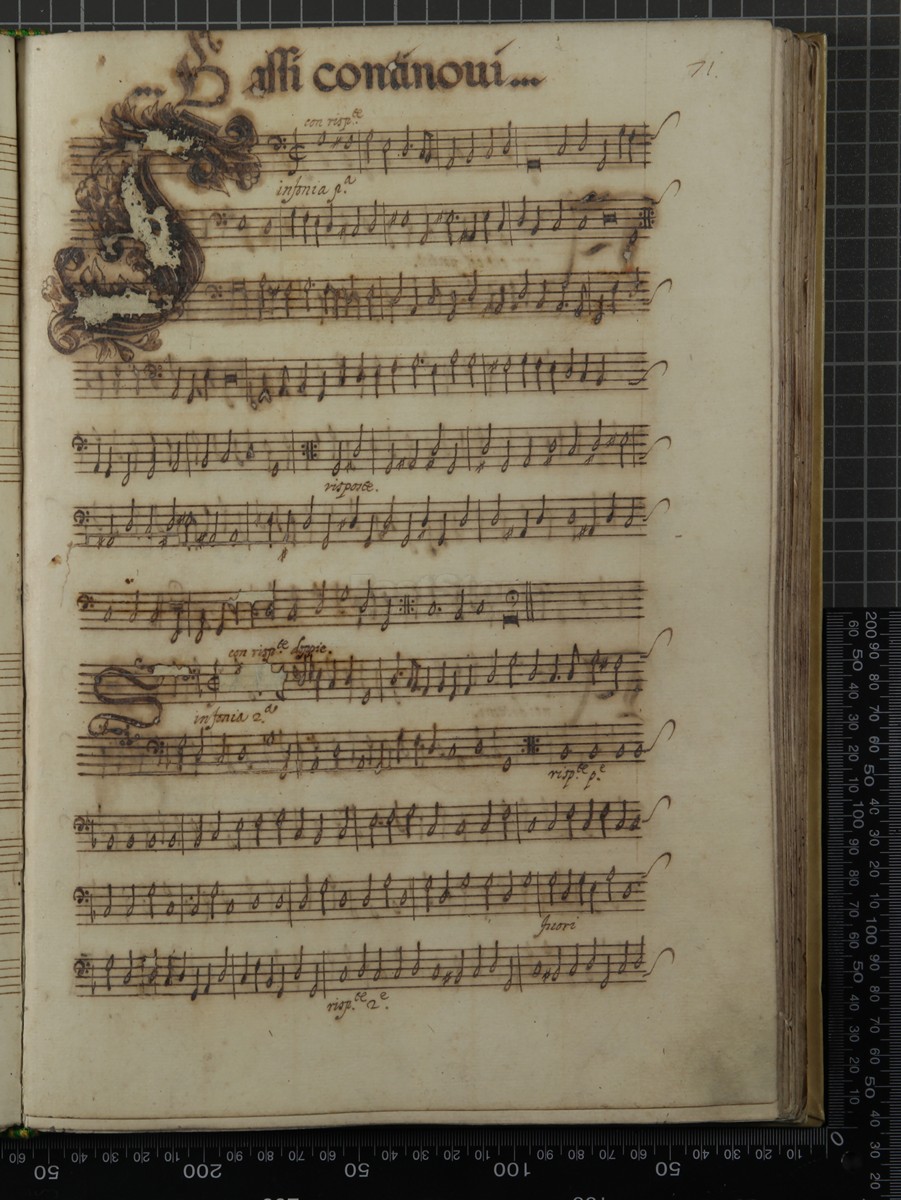 ... Bassi contanoui ...
71.
con risp.te
Sinfonia p.a
risposte.
con risp.te doppie.
Sinfonia 2.a
risp.te p.e
fuori
risp.te 2.e